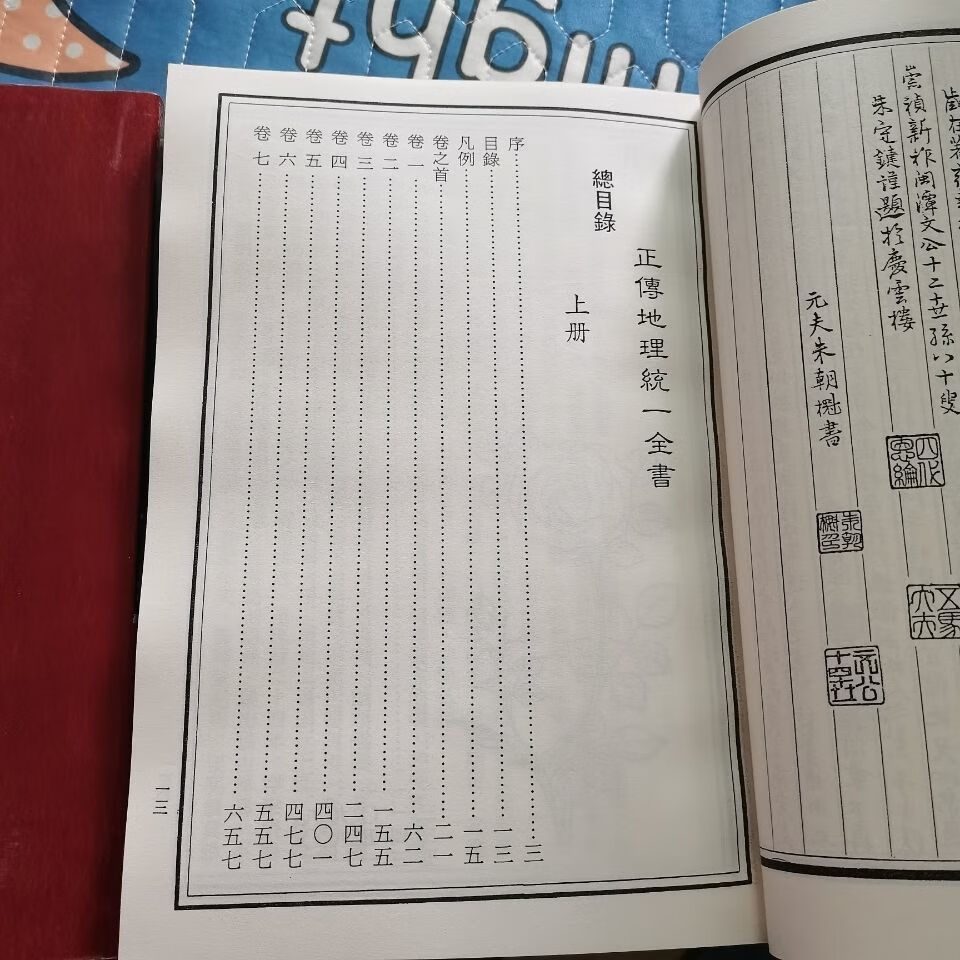 崇禎新祚閩潭文公十二世孫八十叟
朱守鍵謹題於慶雲樓
元夫朱朝櫆書
四代恩綸
正傳地理統一全書
總目錄
上册
序……三
目錄……一三
凡例……一五
卷之首……二一
卷一……六二
卷二……一五五
卷三……二四七
卷四……四〇一
卷五……四七七
卷六……五五七
卷七……六五七
一三